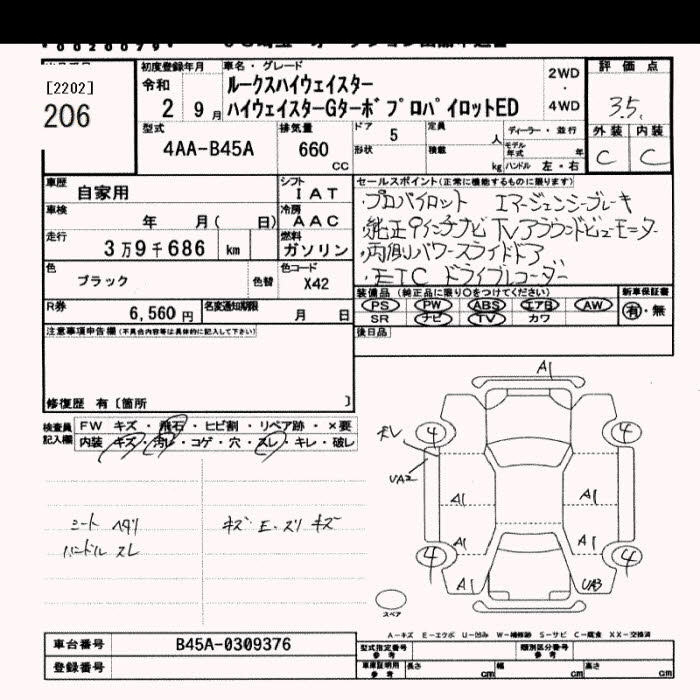 [2202]
206
初度登録年月
令和
2 9月
車名・グレード
ルークスハイウェイスター
ハイウェイスターGターボ プロパイロットED
2WD
・
4WD
評価点
3.5
外装 内装
C C
型式
4AA-B45A
排気量
660
CC
ドア 5
形状
定員
人
積載
kg
ディーラー・並行
モデル年式 年
ハンドル 左・右
車歴
自家用
シフト
IAT
車検
年 月( 日)
冷房
AAC
走行
3万9千686 km
燃料
ガソリン
色
ブラック
色替
色コード
X42
R券
6,560 円
名変通知期限
月 日
セールスポイント(正常に機能するものに限ります)
・プロパイロット エマージェンシーブレーキ
・純正9インチナビ TV アラウンドビューモニター
・両側パワースライドドア
・ETC ドライブレコーダー
装備品 (純正品に限り○をつけてください)
PS PW ABS エアB AW
SR ナビ TV カワ
新車保証書
有・無
後日品
注意事項申告欄(不具合内容等は具体的に記入して下さい)
修復歴 有〔箇所 〕
検査員
記入欄
FW キズ・飛石・ヒビ割・リペア跡・×要
内装 キズ・汚レ・コゲ・穴・スレ・キレ・破レ
シート ヘタリ
ハンドル スレ
キズ E・スリキズ
A1
4
4
UA2
A1
A1
A1
A1
4
4
A1
UA3
スペア
A-キズ E-エクボ U-凹み W-補修跡 S-サビ C-腐食 XX-交換済
車台番号
B45A-0309376
登録番号
型式指定番号
参考
類別区分番号
参考
車庫証明用
参考
長さ cm
幅 cm
高さ cm